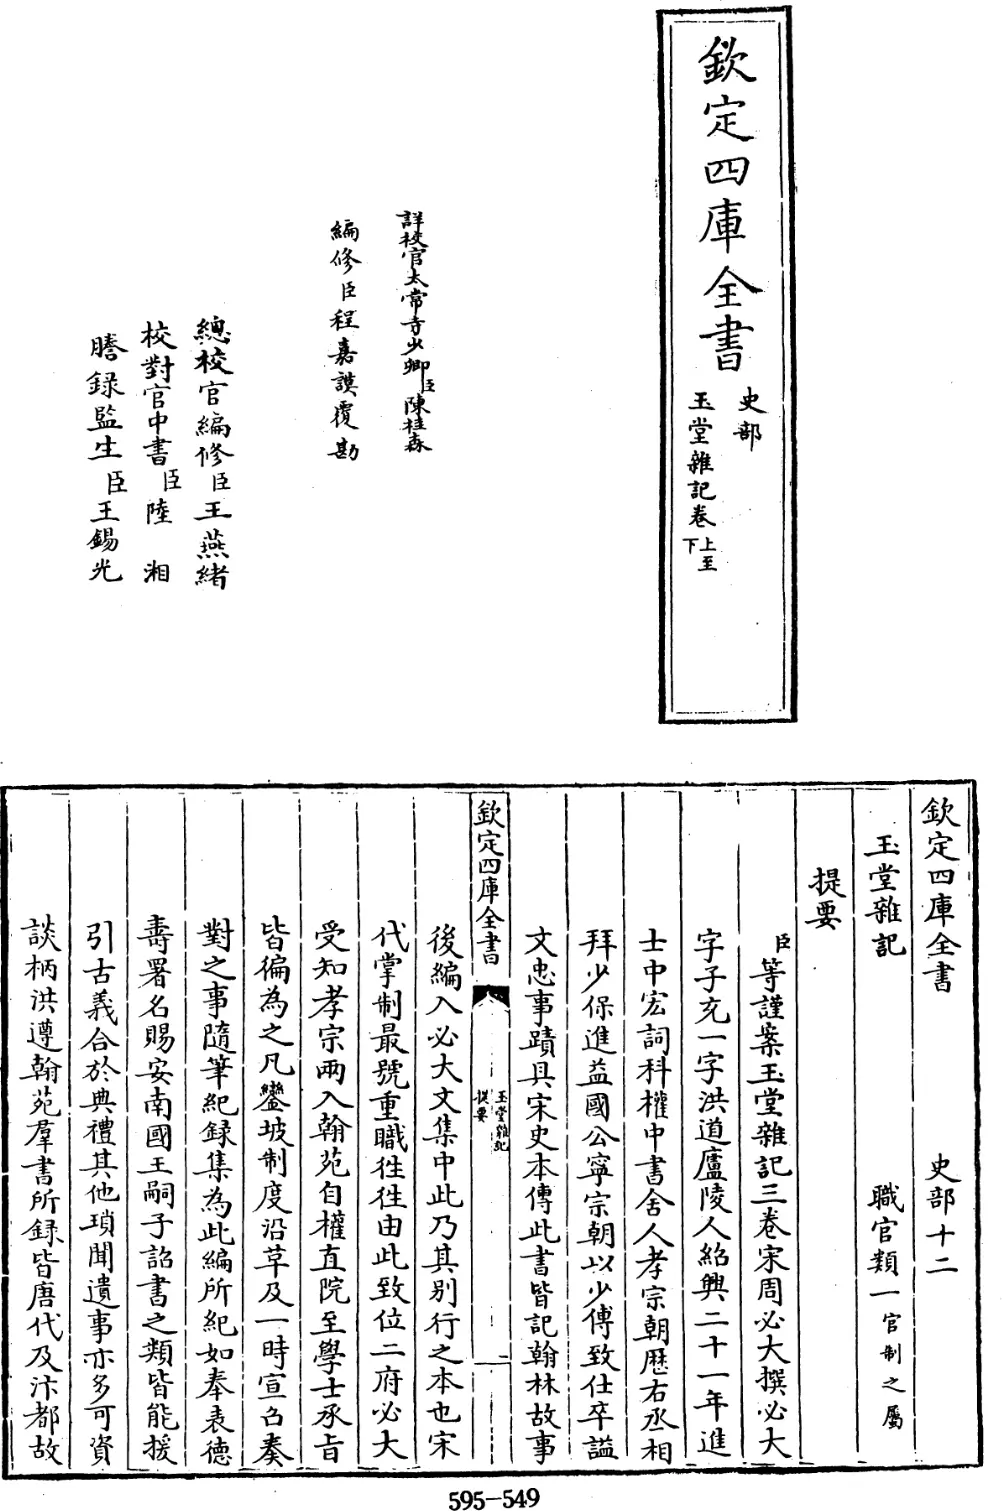 欽定四庫全書
史部
玉堂雜記卷上至下
詳校官太常寺少卿臣陳桂森
編修臣程嘉謨覆勘
總校官編修臣王燕緒
校對官中書臣陸湘
謄録監生臣王錫光
欽定四庫全書 史部十二
玉堂雜記 職官類一官制之屬
提要
臣等謹案玉堂雜記三卷宋周必大撰必大
字子充一字洪道廬陵人紹興二十一年進
士中宏詞科權中書舍人孝宗朝歴右丞相
拜少保進益國公寧宗朝以少傅致仕卒謚
文忠事蹟具宋史本傳此書皆記翰林故事
欽定四庫全書 玉堂雜記提要 一
後編入必大文集中此乃其别行之本也宋
代掌制最號重職徃徃由此致位二府必大
受知孝宗兩入翰苑自權直院至學士承旨
皆徧為之凡鑾坡制度沿革及一時宣召奏
對之事隨筆紀録集為此編所紀如奉表德
壽署名賜安南國王嗣子詔書之類皆能援
引古義合於典禮其他瑣聞遺事亦多可資
談柄洪遵翰苑羣書所録皆唐代及汴都故
595-549